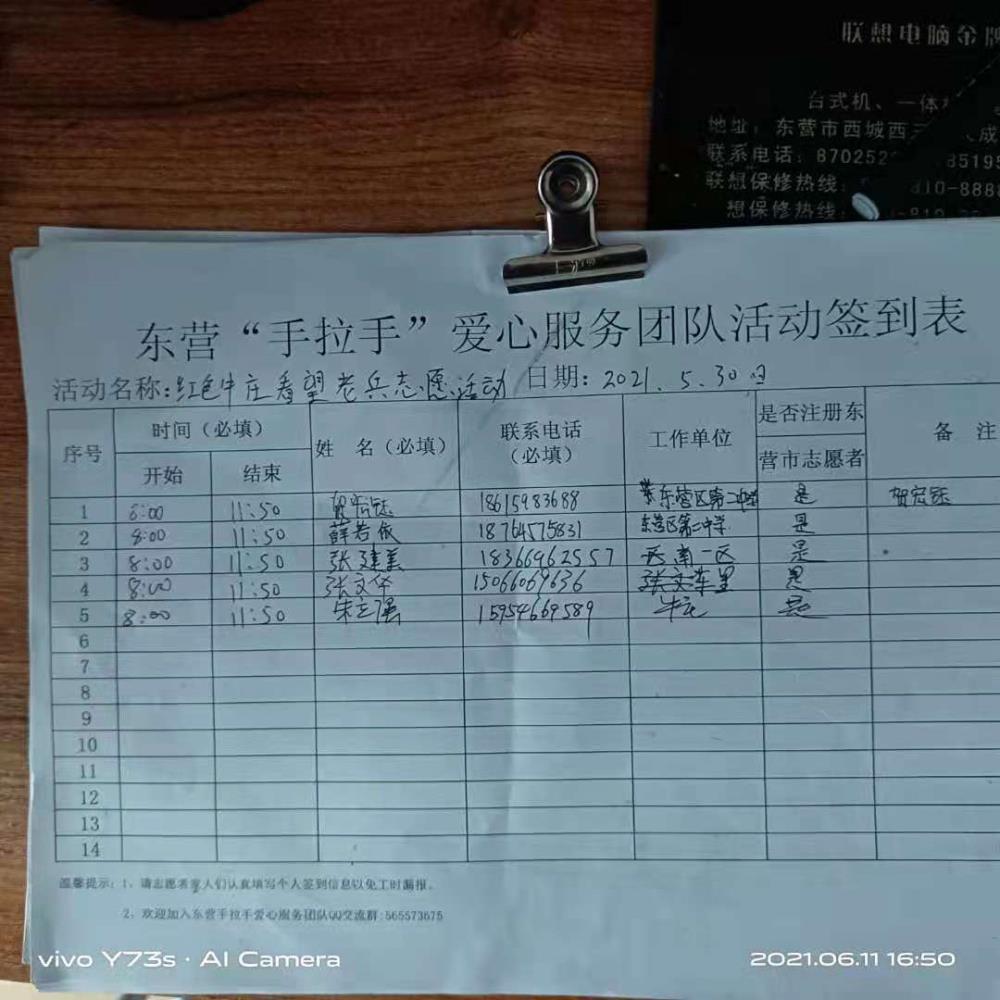 联想电脑金牌
台式机、一体
地址：东营市西城西三
联系电话：870252 85195
联想保修热线： 810-888
想保修热线： -810-
东营“手拉手”爱心服务团队活动签到表
活动名称：红色牛庄看望老兵志愿活动 日期：2021.5.30日
序号 时间（必填） 姓 名（必填） 联系电话（必填） 工作单位 是否注册东营市志愿者 备 注
开始 结束
1 8:00 11:50 贺宏钰 18615983688 东营区第二中学 是 贺宏钰
2 8:00 11:50 薛若依 18764575831 东营区第二中学 是
3 8:00 11:50 张建美 18366962557 南一区 是
4 8:00 11:50 张文华 15066069636 是
5 8:00 11:50 朱立强 15954669589 牛庄 是
6
7
8
9
10
11
12
13
14
温馨提示：1、请志愿者家人们认真填写个人签到信息以免工时漏报。
2、欢迎加入东营手拉手爱心服务团队QQ交流群:565573675
vivo Y73s · AI Camera
2021.06.11 16:50